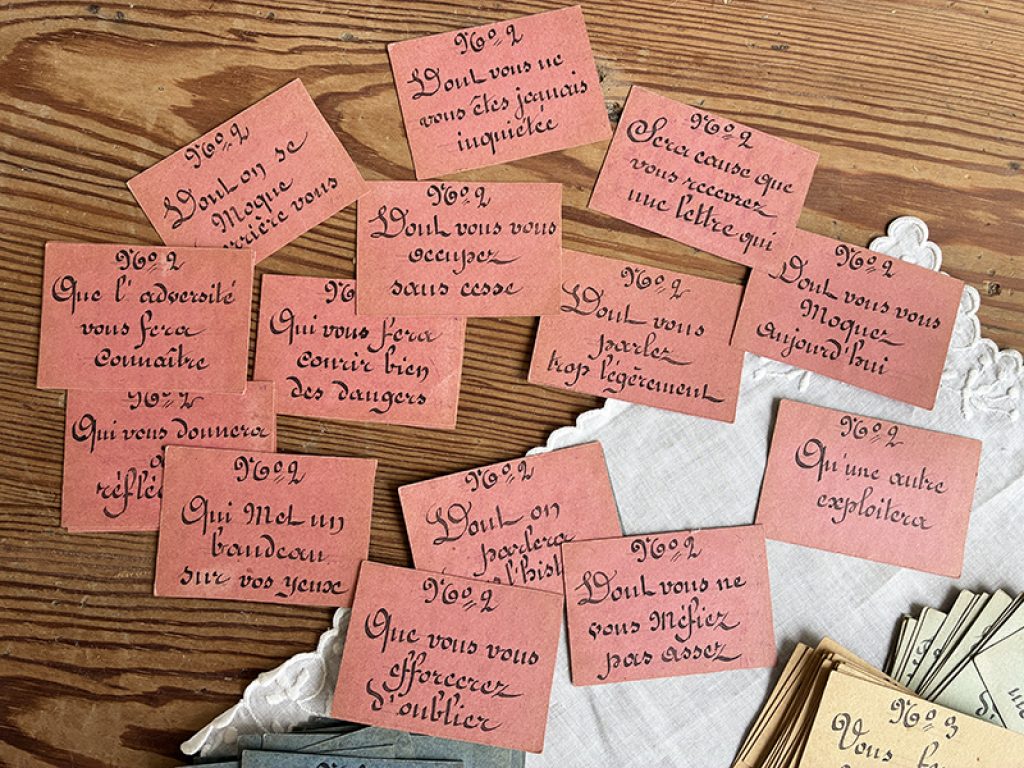 No 2
Dont vous ne
vous êtes jamais
inquiétée
No 2
Dont on se
Moque
rrière vous
No 2
Sera cause que
vous recevrez
une lettre qui
No 2
Dont vous vous
occupez
sans cesse
No 2
Que l'adversité
vous fera
connaître
No
Qui vous fera
courir bien
des dangers
No 2
Dont vous
parlez
trop légèrement
No 2
Dont vous vous
Moquez
aujourd'hui
No 2
Qui vous donnera
réflé
No 2
Qui Met un
bandeau
sur vos yeux
No 2
Dont on
parlera
l'hist
No 2
Qu'une autre
exploitera
No 2
Dont vous ne
vous Méfiez
pas assez
No 2
Que vous vous
efforcerez
d'oublier
No 3
Vous